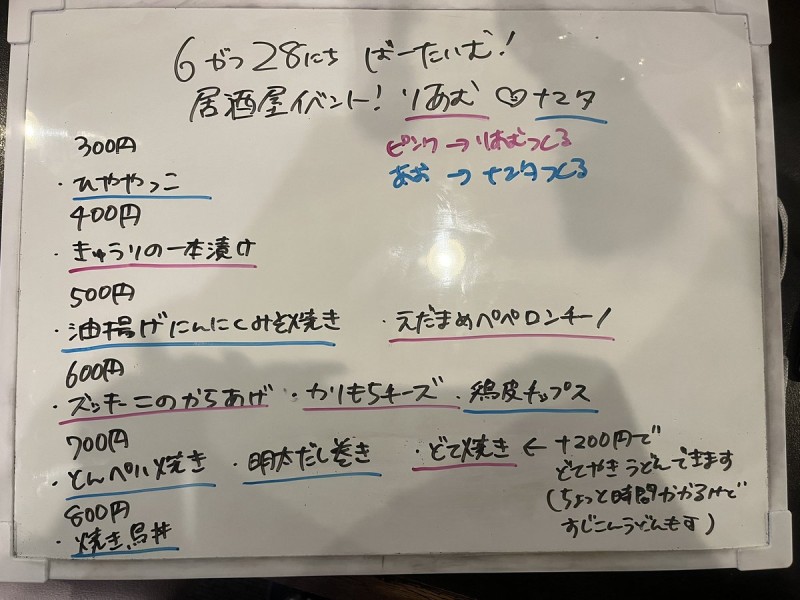 6がつ28にち ばーたいむ!
居酒屋イベント! りあむ♡ナマタ
ピンク→りあむつくる
あお→ナマタつくる
300円
・ひややっこ
400円
・きゅうりの一本漬け
500円
・油揚げにんにくみそ焼き ・えだまめペペロンチーノ
600円
・ズッキーニのからあげ ・かりもちチーズ ・鶏皮チップス
700円
・とんぺい焼き ・明太だし巻き ・どて焼き ← +200円で
どてやきうどんできます
(ちょっと時間かかるけど
すじこんうどんもす)
800円
・焼き鳥丼